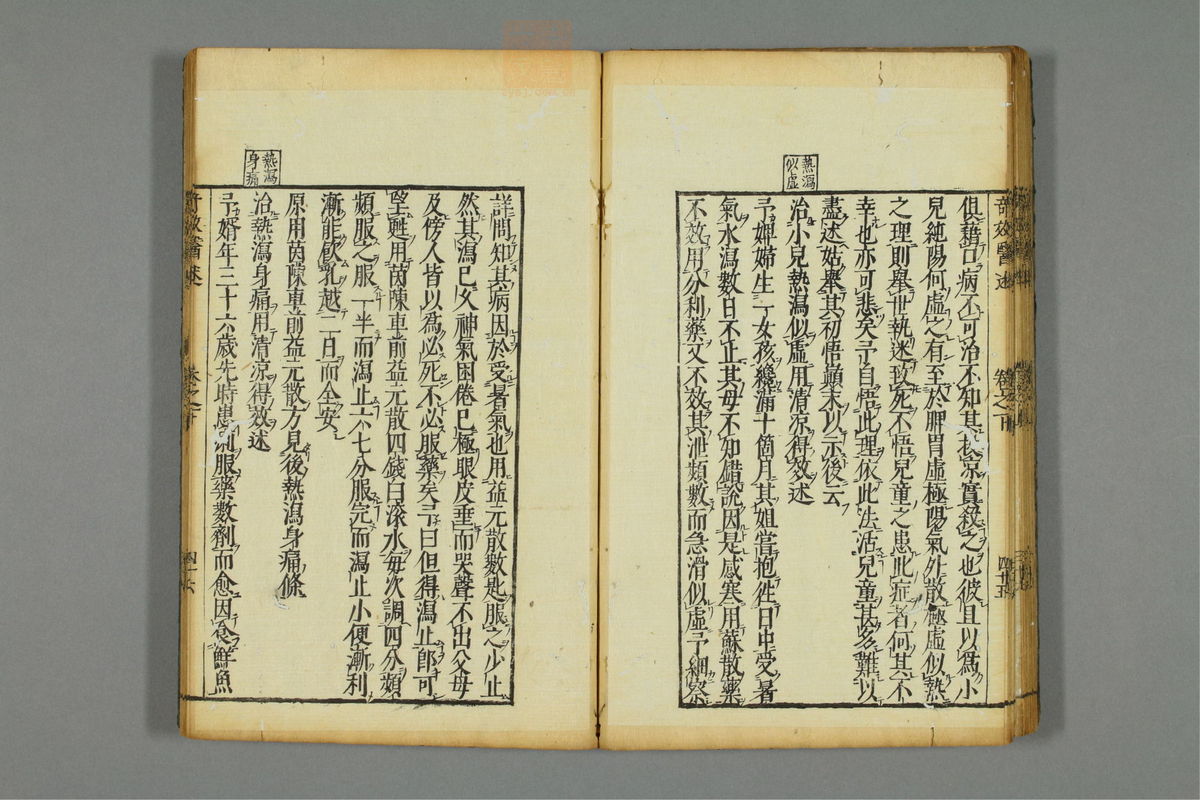 奇效醫述 卷之下 四十五
熱瀉
似虛
俱藉口病不可治不知其投凉實殺之也彼且以爲小
兒純陽何虛之有至於脾胃虛極陽氣外散極虛似熱
之理則舉世執迷致死不悟兒童之患此症者何其不
幸也亦可悲矣予自悟此理依此法活兒童甚多難以
盡述姑舉其初悟巔末以示後云
治小兒熱瀉似虛用清凉得效述
予婢婦生一女孩纔滿十箇月其姐當抱徃日中受暑
氣水瀉數日不止其母不知錯說因是感寒用蘇散藥
不效用分利藥又不效其泄頻數而急滑似虛予細察
詳問知其病因於受暑氣也用益元散數匙服之少止
然其瀉已久神氣困倦已極眼皮垂而哭聲不出父母
及傍人皆以爲必死不必服藥矣予曰但得瀉止即可
望甦用茵陳車前益元散四錢白滾水每次調四分頻
頻服之服一半而瀉止六七分服完而瀉止小便漸利
漸能飲乳越二日而全安
原用茵陳車前益元散方見後熱瀉身痛條
熱瀉
身痛
治熱瀉身痛用清凉得效述
予婿年三十六歲先時患痢服藥數劑而愈因食鮮魚
奇效醫述 卷之下 四十六